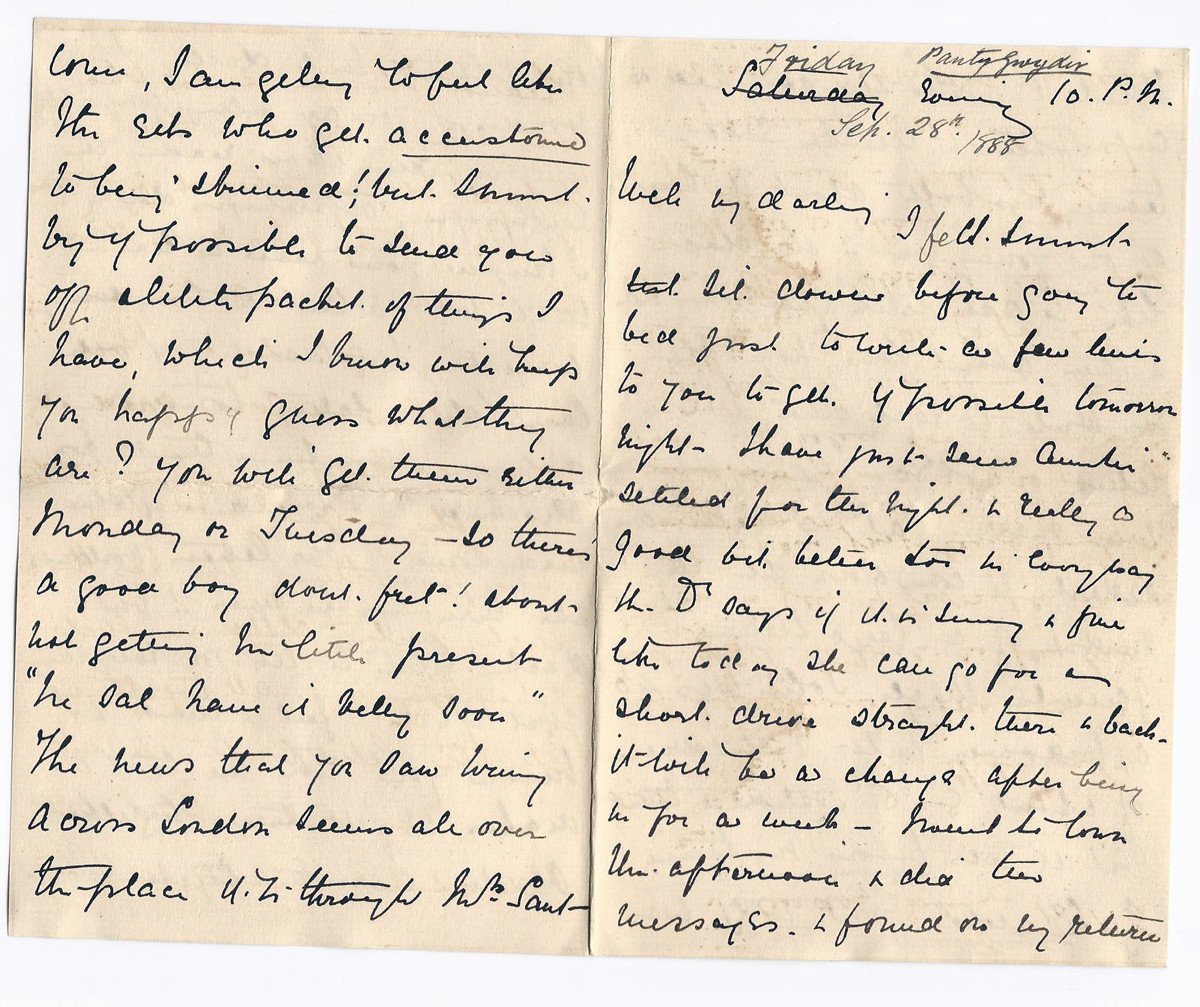 town, I am getting to feel like
the eels who get accustomed
to being skinned! but I must
try if possible to send you
off a little packet of things I
have, which I know will keep
you happy guess what they
are? You will get them either
Monday or Tuesday – so there's
a good boy dont fret! about
not getting his little present
"he sal have it belly soon"
The news that you saw
across London seems all over
the place it is through Mrs
Friday Pantygwydir
Saturday Evening 10. P.M.
Sep. 28th. 1888
Well my darling
I felt I must
sit down before going to
bed just to write a few lines
to you to get if possible tomorrow
night – I have just seen Auntie
settled for the night & really a
good bit better too in every way
the Dr says if it is sunny & fine
like today she can go for a
short drive straight there & back –
it will be a change after being
in for a week – I went to town
this afternoon & did two
messages. & found on my return